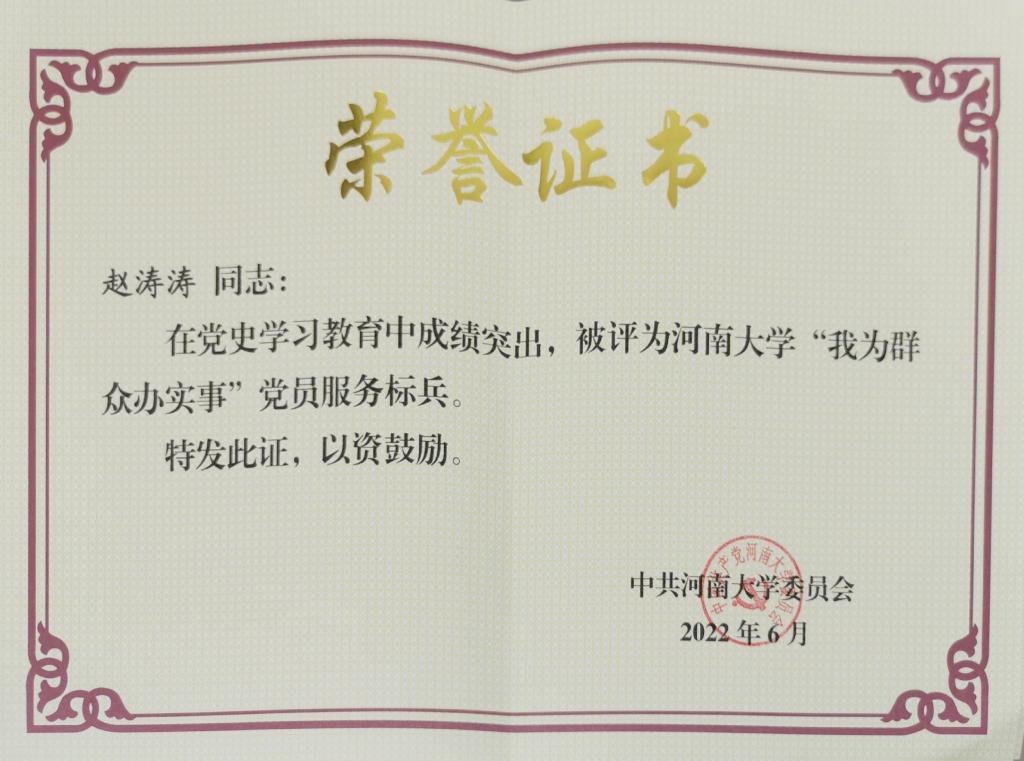 荣誉证书
赵涛涛 同志：
在党史学习教育中成绩突出，被评为河南大学“我为群
众办实事”党员服务标兵。
特发此证，以资鼓励。
中国共产党河南大学委员会
中共河南大学委员会
2022 年 6 月